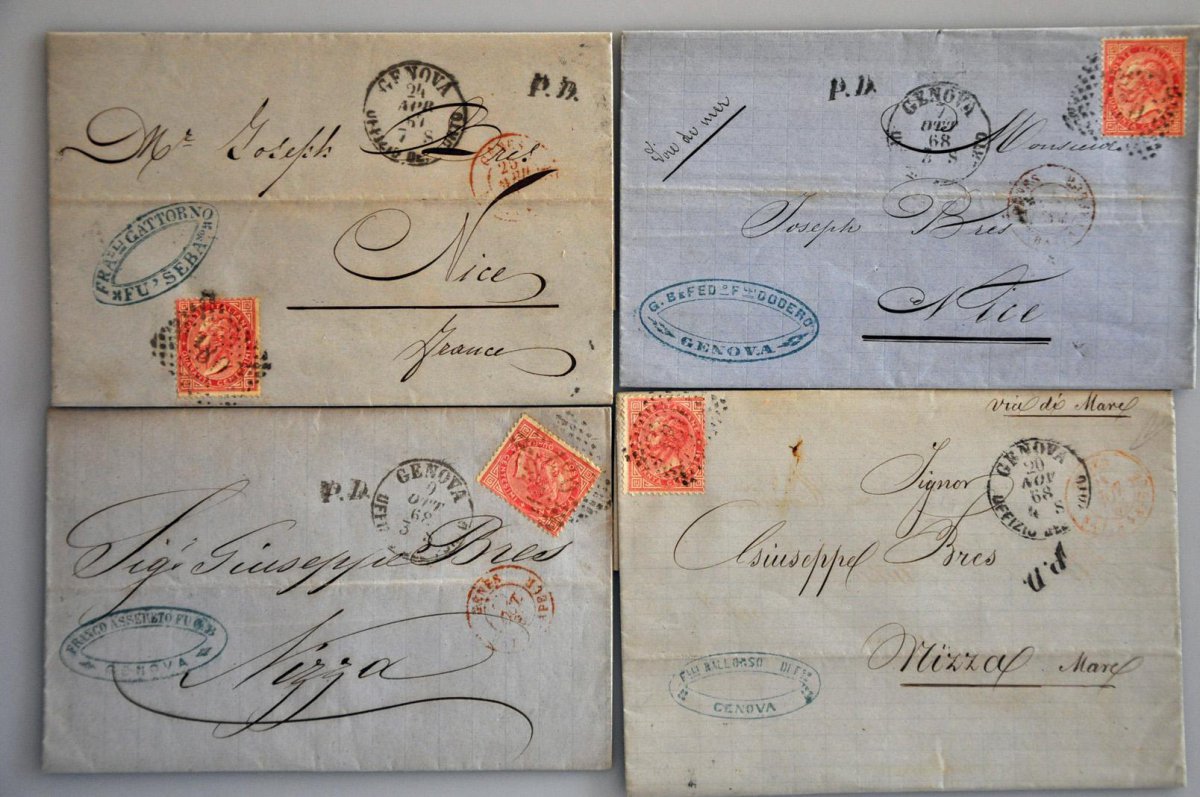 GENOVA
24
APR
67
7 S
P.D.
Mr. Joseph Bres
GENES
25
FRA.LLI GATTORNO
FU SEBA.NO
Nice
France
P.D.
GENOVA
7
OTT
68
8 S
Voie de mer
Monsieur
GENES
Joseph Bres
G. B. E FED.
DODERO
GENOVA
Nice
P.D.
GENOVA
9
OTT
68
Sig.r Giuseppe Bres
GENES
FRANCO ASSERETO FU G.B
GENOVA
Nizza
via di Mare
GENOVA
20
NOV
68
4 S
UFFIZIO DEL
Signor
P.D.
Giuseppe Bres
Nizza Mare
F.LLI BALLORSO DI F.
GENOVA